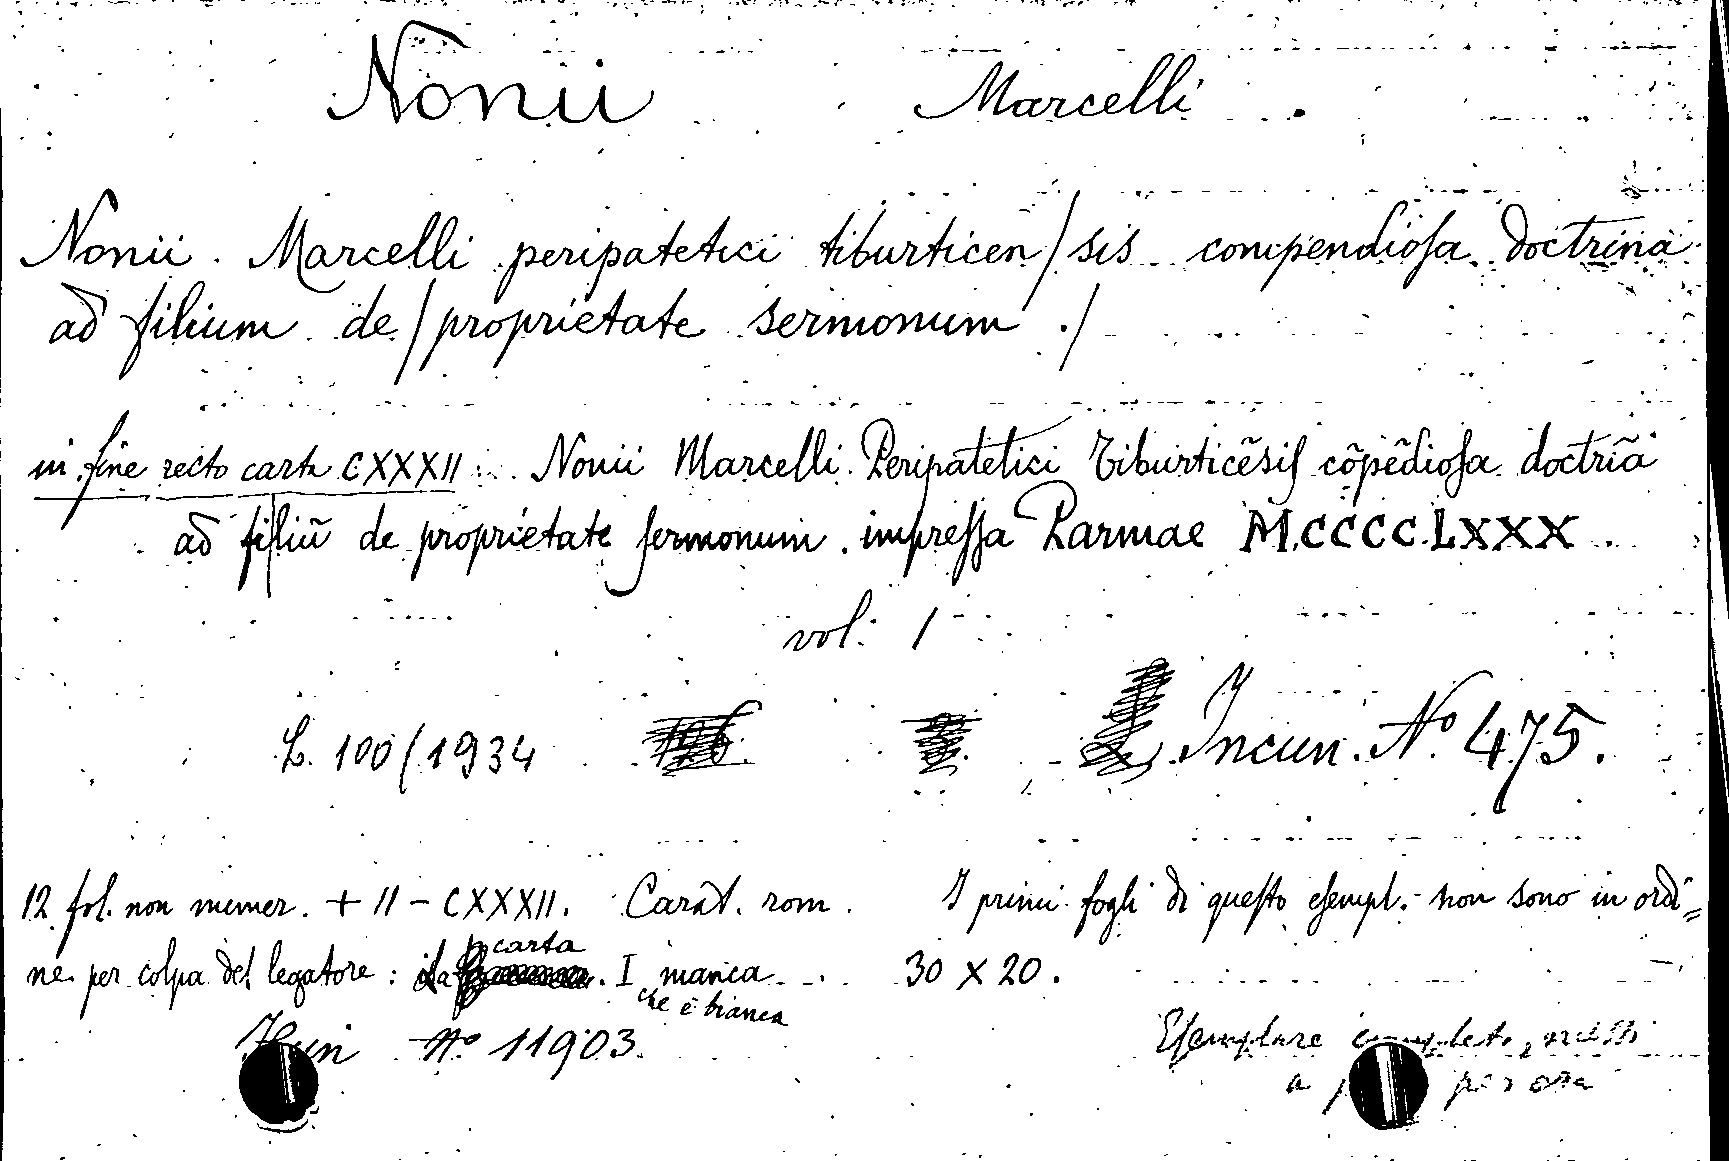 Nonii Marcelli
Nonii Marcelli peripatetici tiburticen/sis compendiosa doctrina
ad filium de/proprietate sermonum ./
in fine recto carta CXXXII: Nonii Marcelli Peripatetici Tiburticẽsis cõpẽdiosa doctriã
ad filiũ de proprietate sermonum impressa Parmae M.CCCC.LXXX.
vol. 1
L. 100/1934 Incun. Nº 475.
12 fol. non numer. + II - CXXXII. Carat. rom. I primi fogli di questo esempl. non sono in ordi=
ne per colpa del legatore: la carta I manca 30 X 20.
che è bianca
Nº 11903. Esemplare completo, messi
a per ora